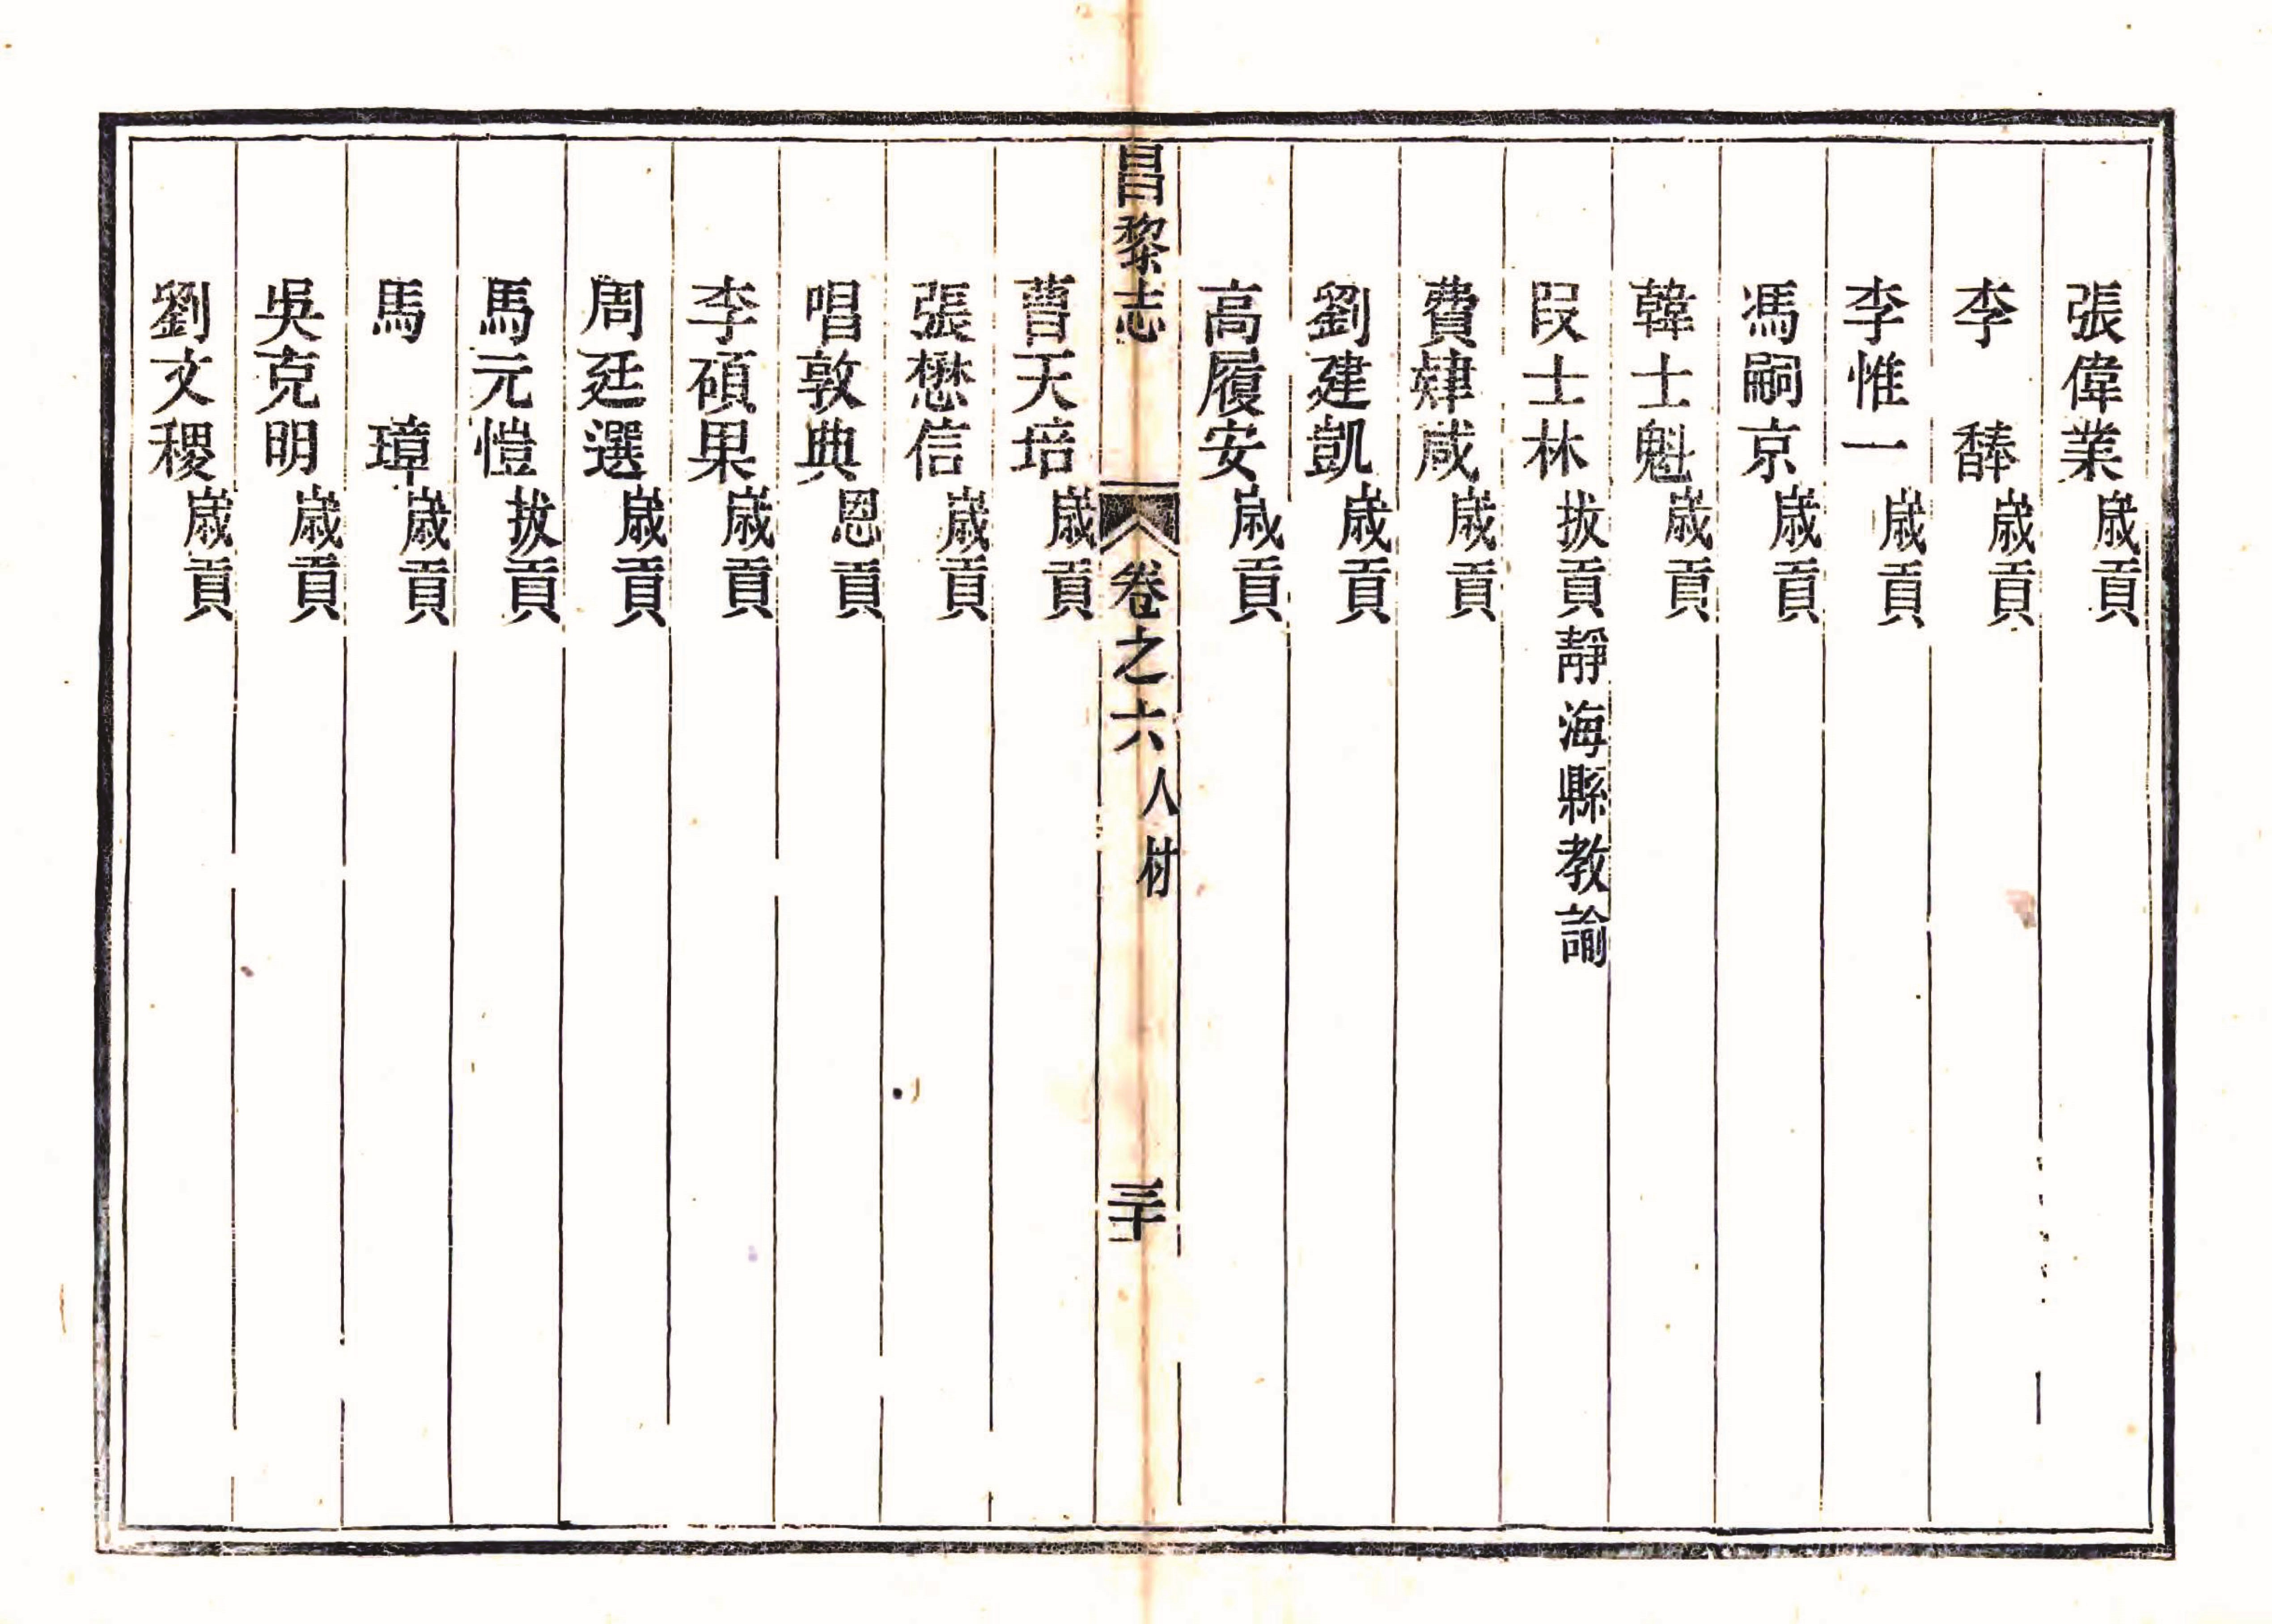 張偉業歲貢
李馞歲貢
李惟一歲貢
馮嗣京歲貢
韓士魁歲貢
段士林拔貢靜海縣教諭
費肆咸歲貢
劉建凱歲貢
高履安歲貢
昌黎志 卷之六 人材 三十
曹天培歲貢
張懋信歲貢
唱敦典恩貢
李碩果歲貢
周廷選歲貢
馬元愷拔貢
馬璋歲貢
吳克明歲貢
劉文稷歲貢